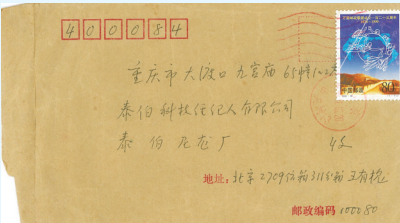 400084
重庆市大渡口九宫庙65幢
泰伯科技经纪人有限公司
泰伯尼龙厂
收
地址:北京2709信箱311分箱
邮政编码100080
中国邮政
80